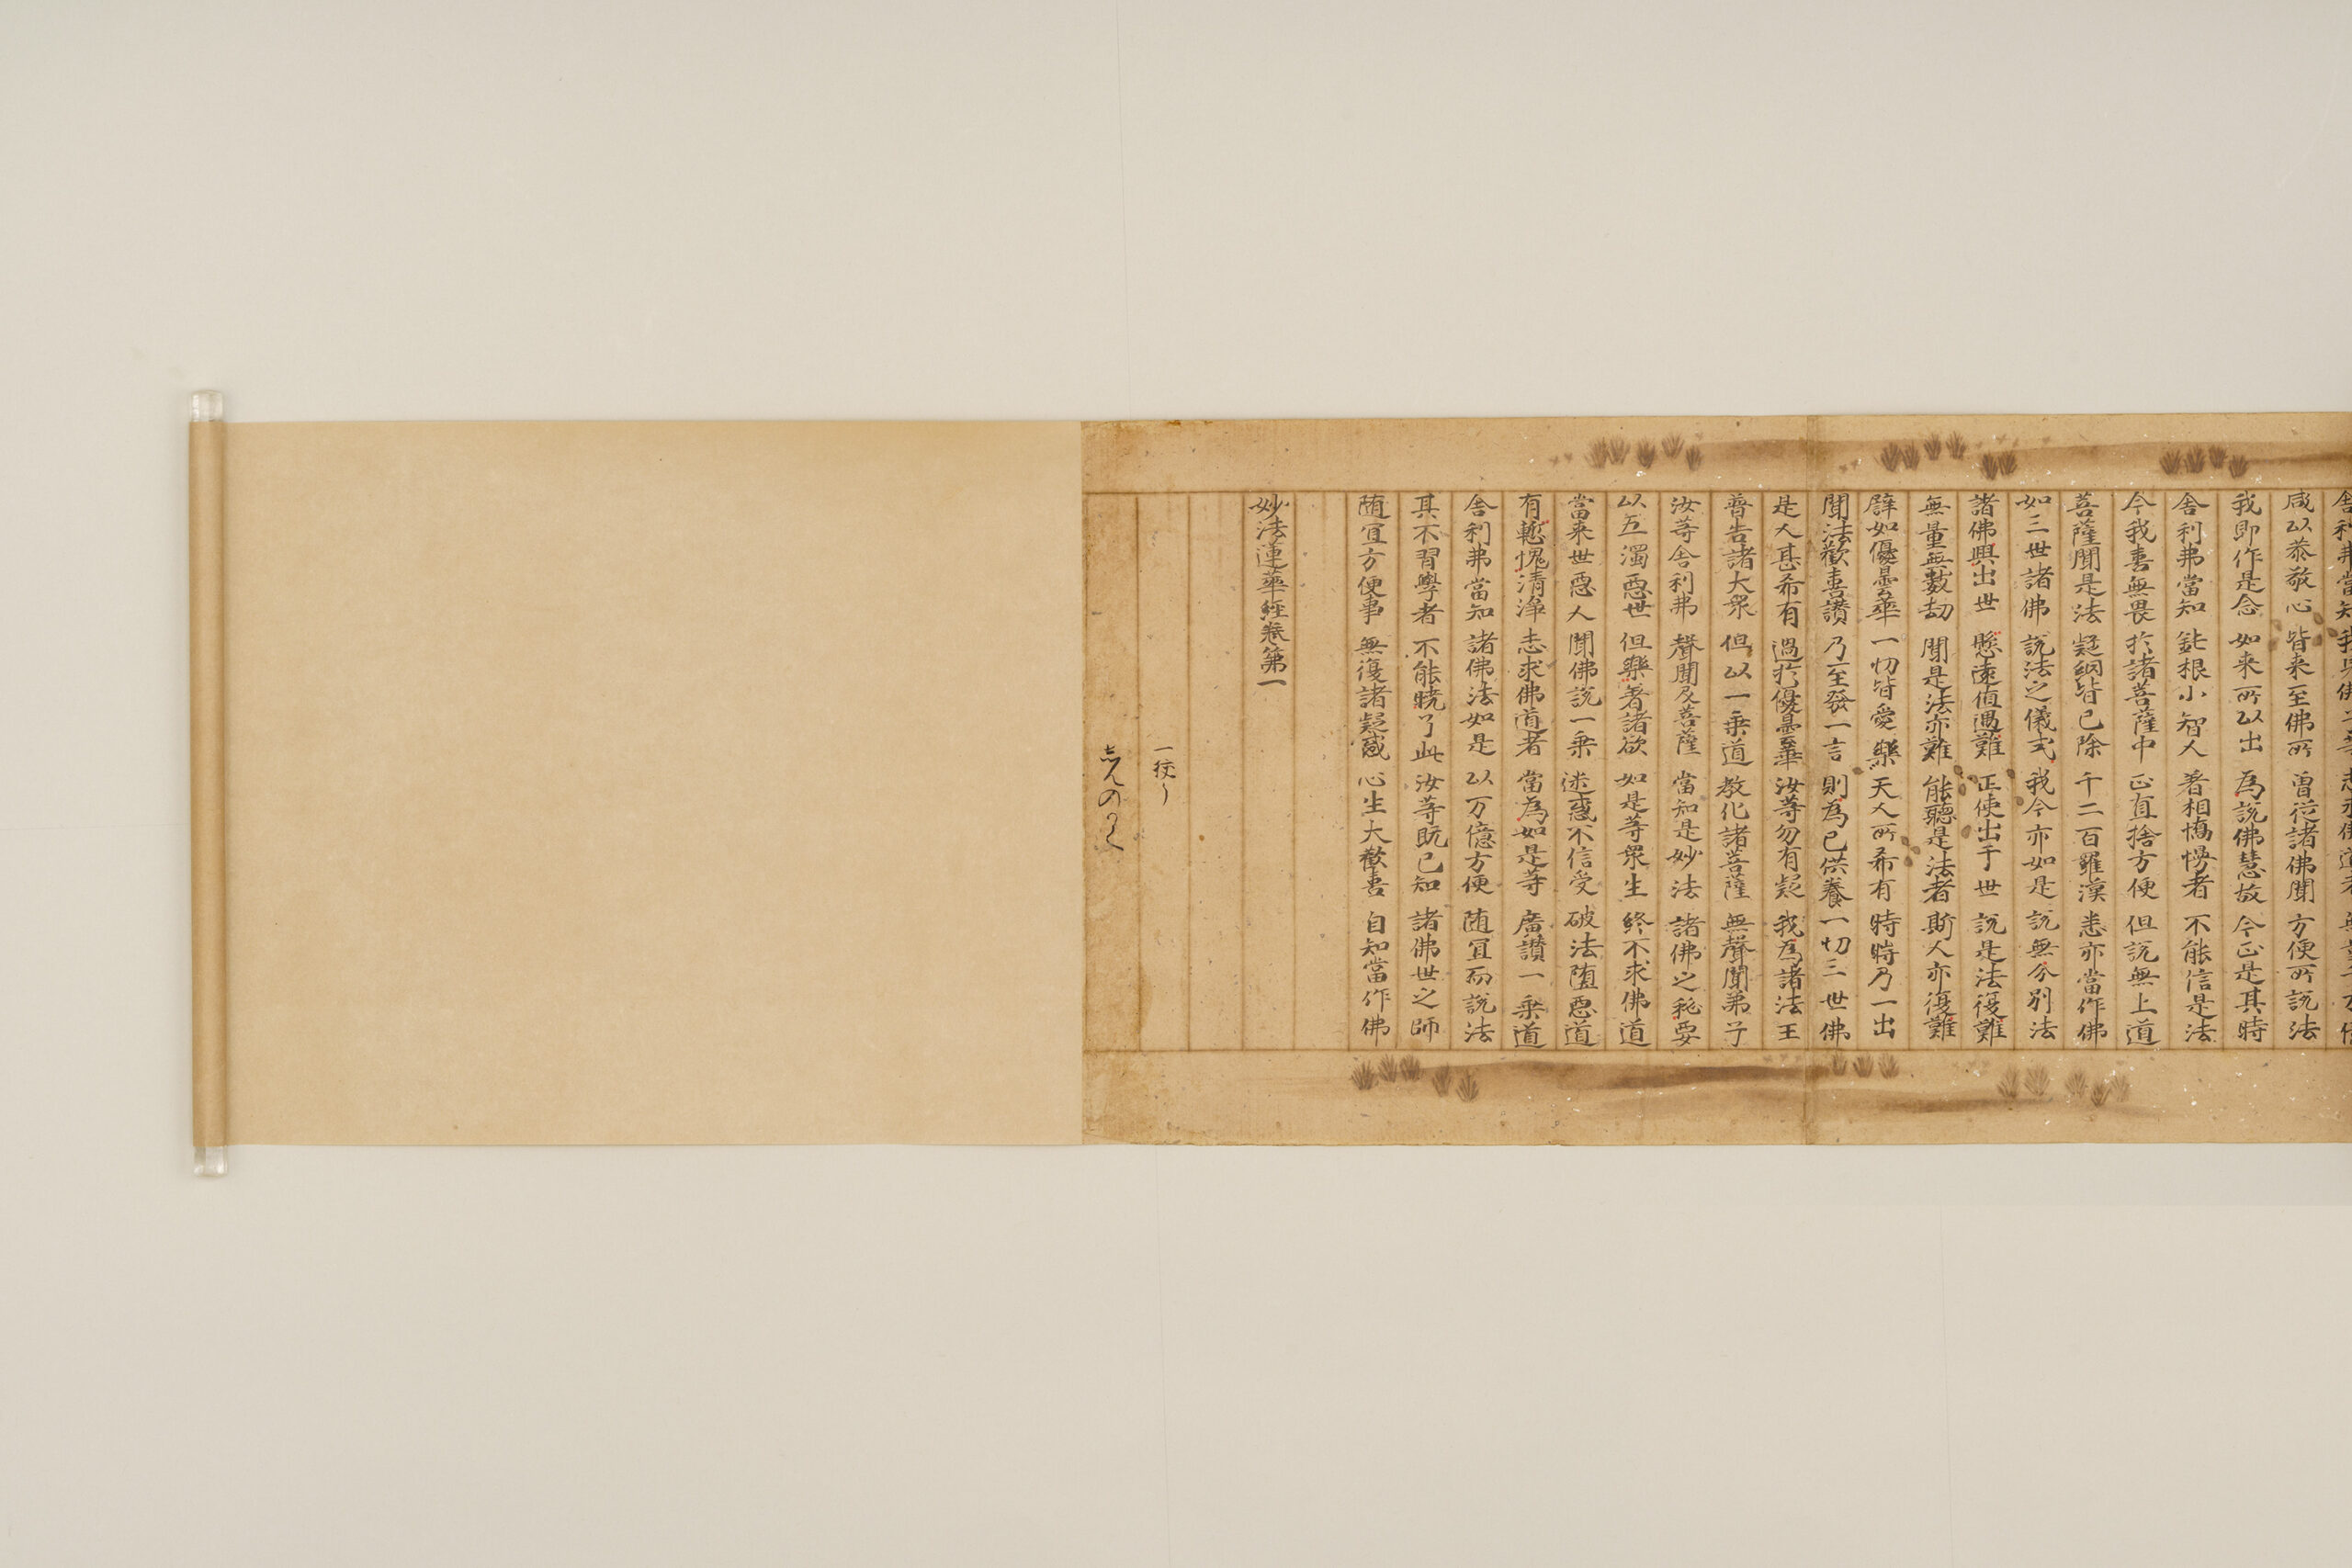 咸以恭敬心 皆来至佛所 曽従諸佛聞 方便所説法
我即作是念 如来所以出 為説佛慧故 今正是其時
舎利弗當知 鈍根小智人 著相憍慢者 不能信是法
今我喜無畏 於諸菩薩中 正直捨方便 但説無上道
菩薩聞是法 疑網皆已除 千二百羅漢 悉亦當作佛
如三世諸佛 説法之儀式 我今亦如是 説無分別法
諸佛興出世 懸遠値遇難 正使出于世 説是法復難
無量無數劫 聞是法亦難 能聽是法者 斯人亦復難
譬如優曇華 一切皆愛樂 天人所希有 時時乃一出
聞法歡喜讃 乃至發一言 則為已供養 一切三世佛
是人甚希有 過於優曇華 汝等勿有疑 我為諸法王
普告諸大衆 但以一乗道 教化諸菩薩 無聲聞弟子
汝等舎利弗 聲聞及菩薩 當知是妙法 諸佛之秘要
以五濁惡世 但樂著諸欲 如是等衆生 終不求佛道
當来世惡人 聞佛説一乗 迷惑不信受 破法堕惡道
有慙愧清浄 志求佛道者 當為如是等 廣讃一乗道
舎利弗當知 諸佛法如是 以万億方便 随冝而説法
其不習學者 不能暁了此 汝等既已知 諸佛世之師
随冝方便事 無復諸疑惑 心生大歡喜 自知當作佛
妙法蓮華経巻第一
一挍了